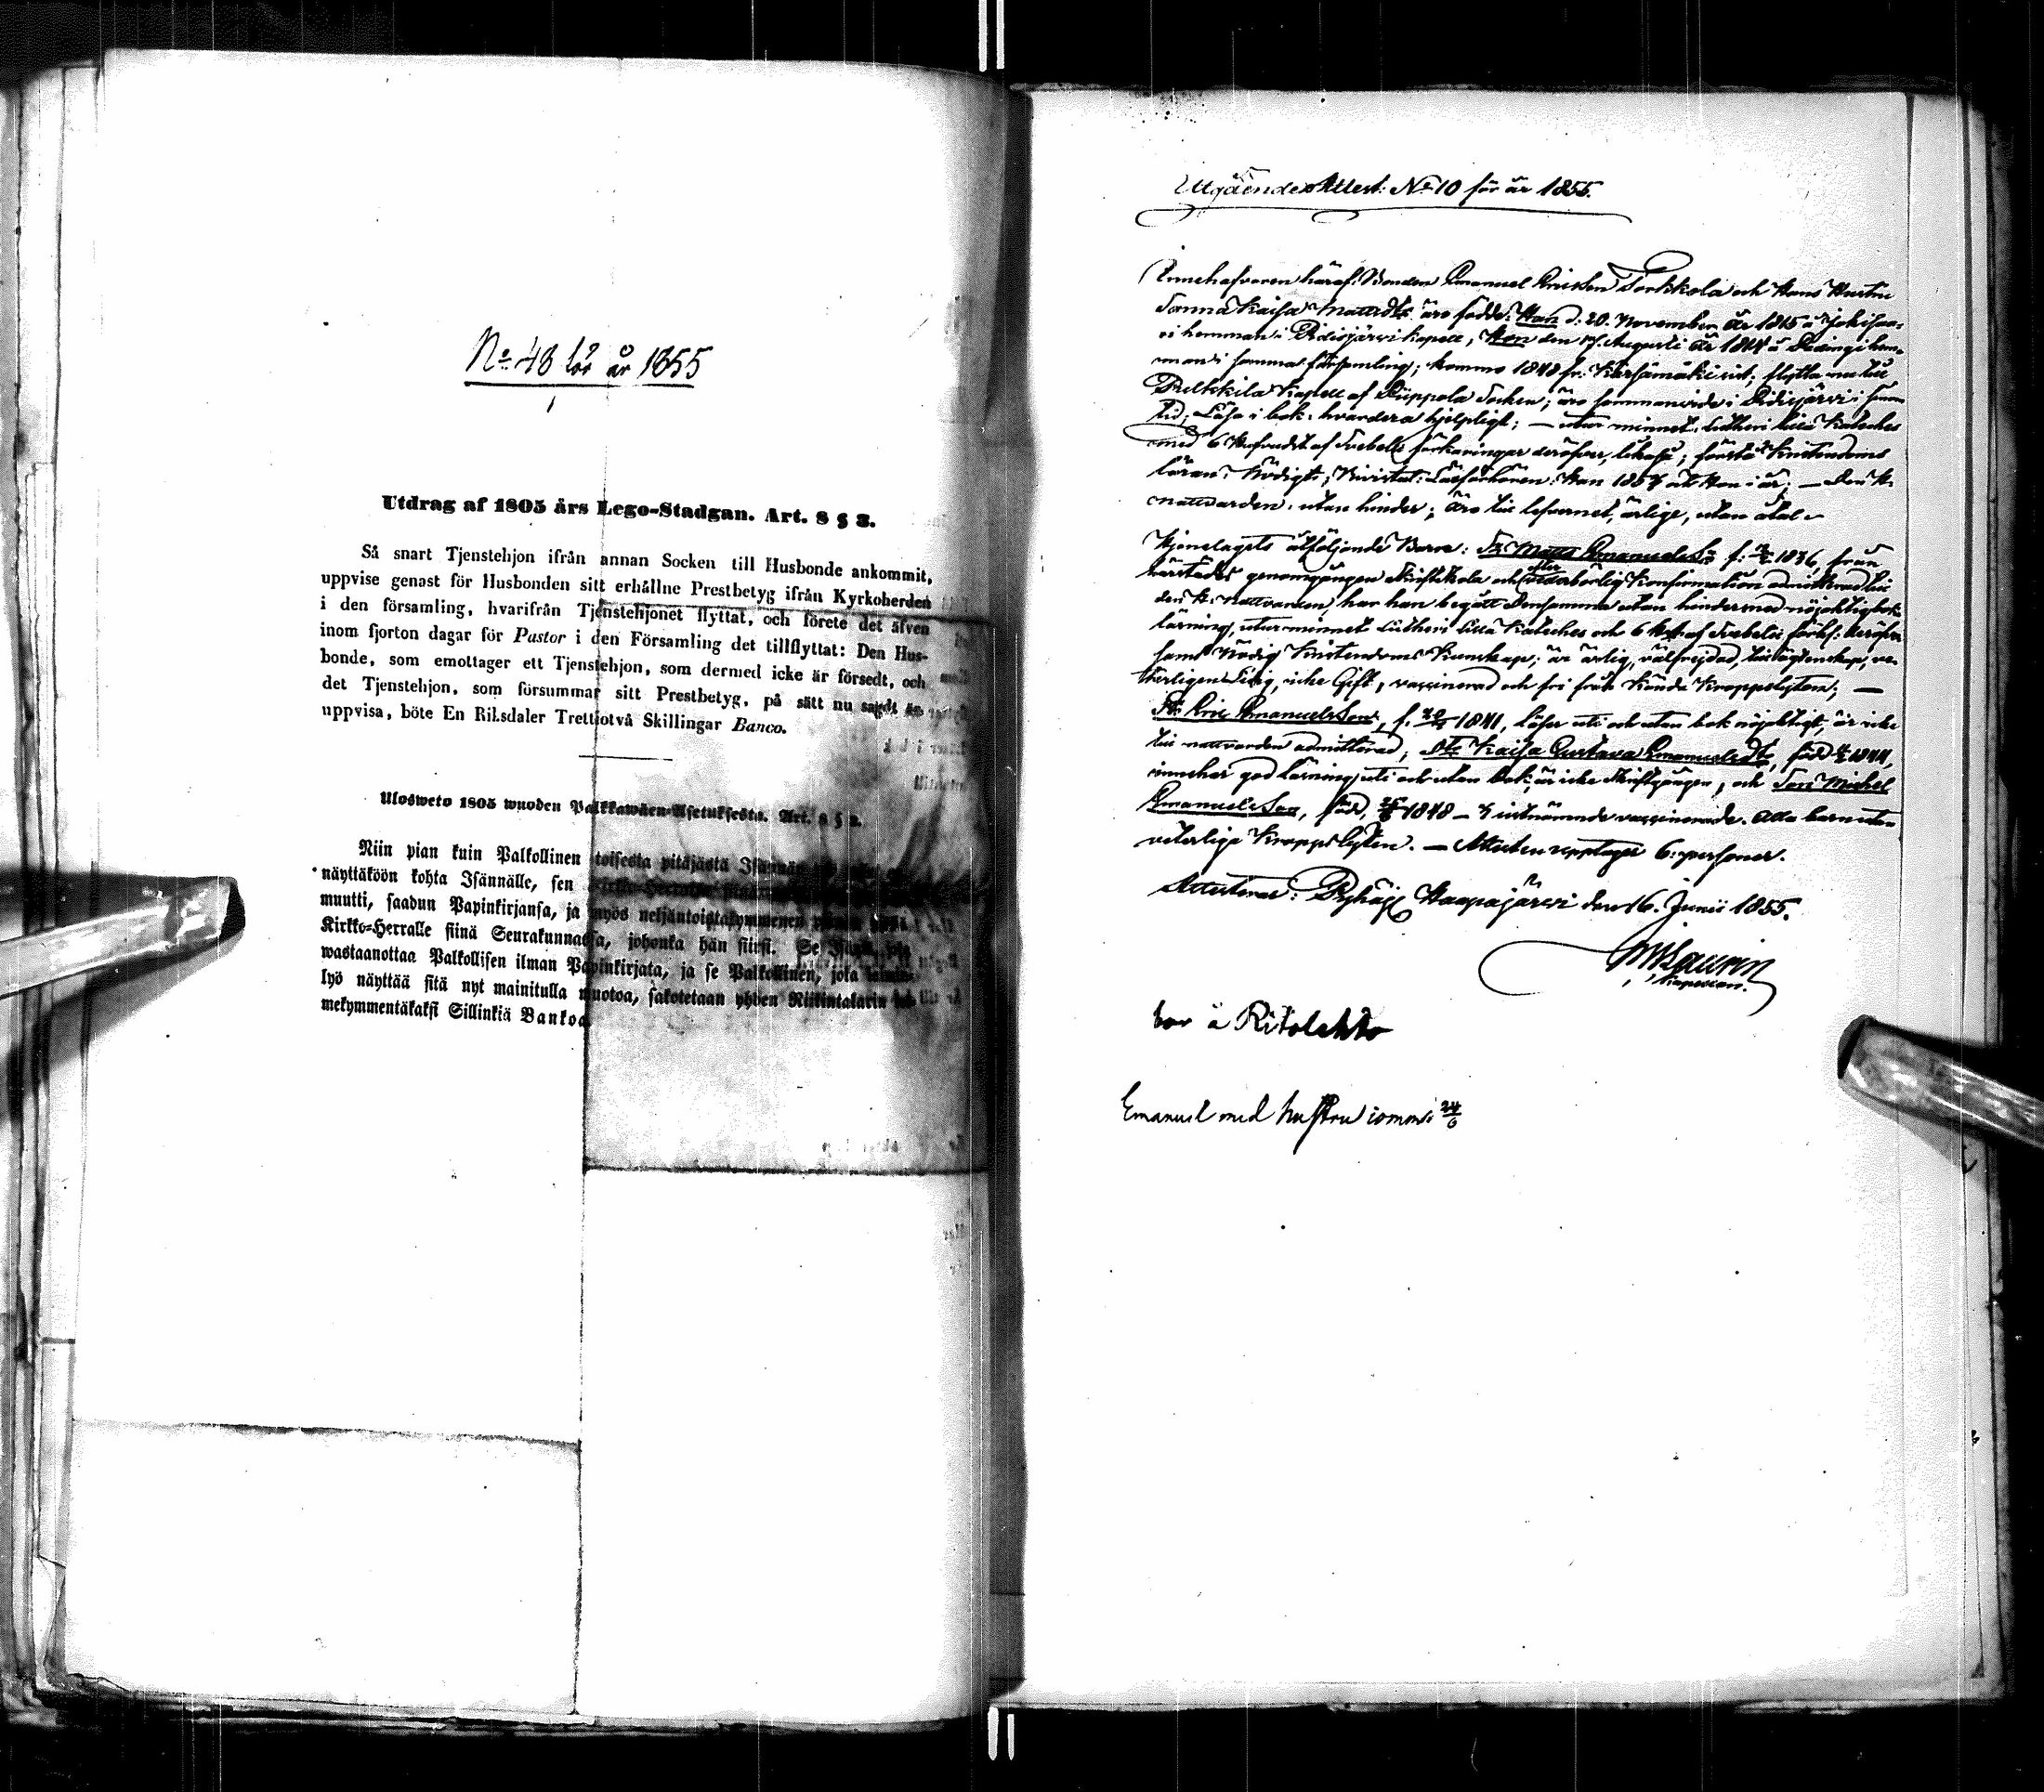 No 48 för år 1855
Utdrag af 1805 års Lego-Stadgan. Art. 8 § 3.
Så snart Tjenstehjon ifrån annan Socken till Husbonde ankommit,
uppvise genast för Husbonden sitt erhållne Prestbetyg ifrån Kyrkoherden
i den församling, hvarifrån Tjenstehjonet flyttat, och förete det äfven
inom fjorton dagar för Pastor i den Församling det tillflyttat: Den Hus-
bonde, som emottager ett Tjenstehjon, som dermed icke är försedt, och
det Tjenstehjon, som försummar sitt Prestbetyg, på sätt nu sagdt är
uppvisa, böte En Riksdaler Trettiotvå Skillingar Banco.
Ulosweto 1805 wuoden Palkkawäen-Asetuksesta. Art. 8 §
Niin pian kuin Palkollinen toisesta pitäjästä Isännän
näyttäköön kohta Isännälle, sen
muutti, saadun Papinkirjansa, ja myös neljäntoistakymmenen
Kirkko-Herralle siinä Seurakunnassa, johonka hän siirsi. Se
wastaanottaa Palkollisen ilman Papinkirjata, ja se Palkollinen, joka
lyö näyttää sitä nyt mainitulla muotoa, sakotetaan yhden Riikintalarin
mekymmentäkaksi Sillinkiä Bankoa
Utgående Attest: No 10 för år 1855.
Innehafvaren häraf: Bonden Emanuel Ericsson Torkkola och Hans Hustru
Sanna Kaisa Mattsdtr äro födde: Han d: 20. November år 1815 å Jokisaa-
ri hemman i Pidisjärvi Kapell, Hon den Augusti år 1814 å hem-
man i samma församling; komme 1848 fr. Kärsämäki
Kapell af Piippola Socken; äro sammanvigde i Pidisjärvi i
tid; Läsa i bok: hvardera hjelpligt; — utur minnet: Lutheri lilla Kateches
med 6 Hufvudst af Svebelii förklaringar deröfver, ; förstå Kristendoms
läran: Nödigt; Läsförhören: Han 1854 Hon i år; — Den H.
nattvarden: utan hinder; äro till lefvernet, ärlige, utan åtal.
Hjonelagets åtföljande Barn: Sn Matts Emanuelsson f: 1836, från
härstädes genomgången Skriftskola och efter behörlig Konfirmation admitterad till
den H. Nattvarden, har han begått densamma utan hinder med nöjaktig bok-
lärning, utur minnet Lutheri Lilla Kateches och 6 H. af Svebelii förkl: deröfver
samt Nödig Kristendoms Kunskap; är ärlig, välfrejdad, till ägtenskap, ve-
terligen Ledig, icke Gift, vaccinerad och fri från Kända Kroppslyten; —
Sn Eric Emanuelsson, f. 1841, läser uti och utan bok nöjaktigt, är icke
till nattvarden admitterad; Dtr Kaisa Gustava Emanuelsdtr, född 1844,
innehar god läsning uti och utan bok, är icke Skriftgången, och Son Michel
Emanuelsson, född, 1848 — 3 sistnämnde vaccinerade. Alla barn utan
veterliga Kroppslyten. — Attesten upptager 6: personer.
Attesterar: Pyhäj: Haapajärvi den 16. Junii 1855.
Laurin
Kapellan.
bor å Ritolehto
Emanuel med hustru komm: 24/6